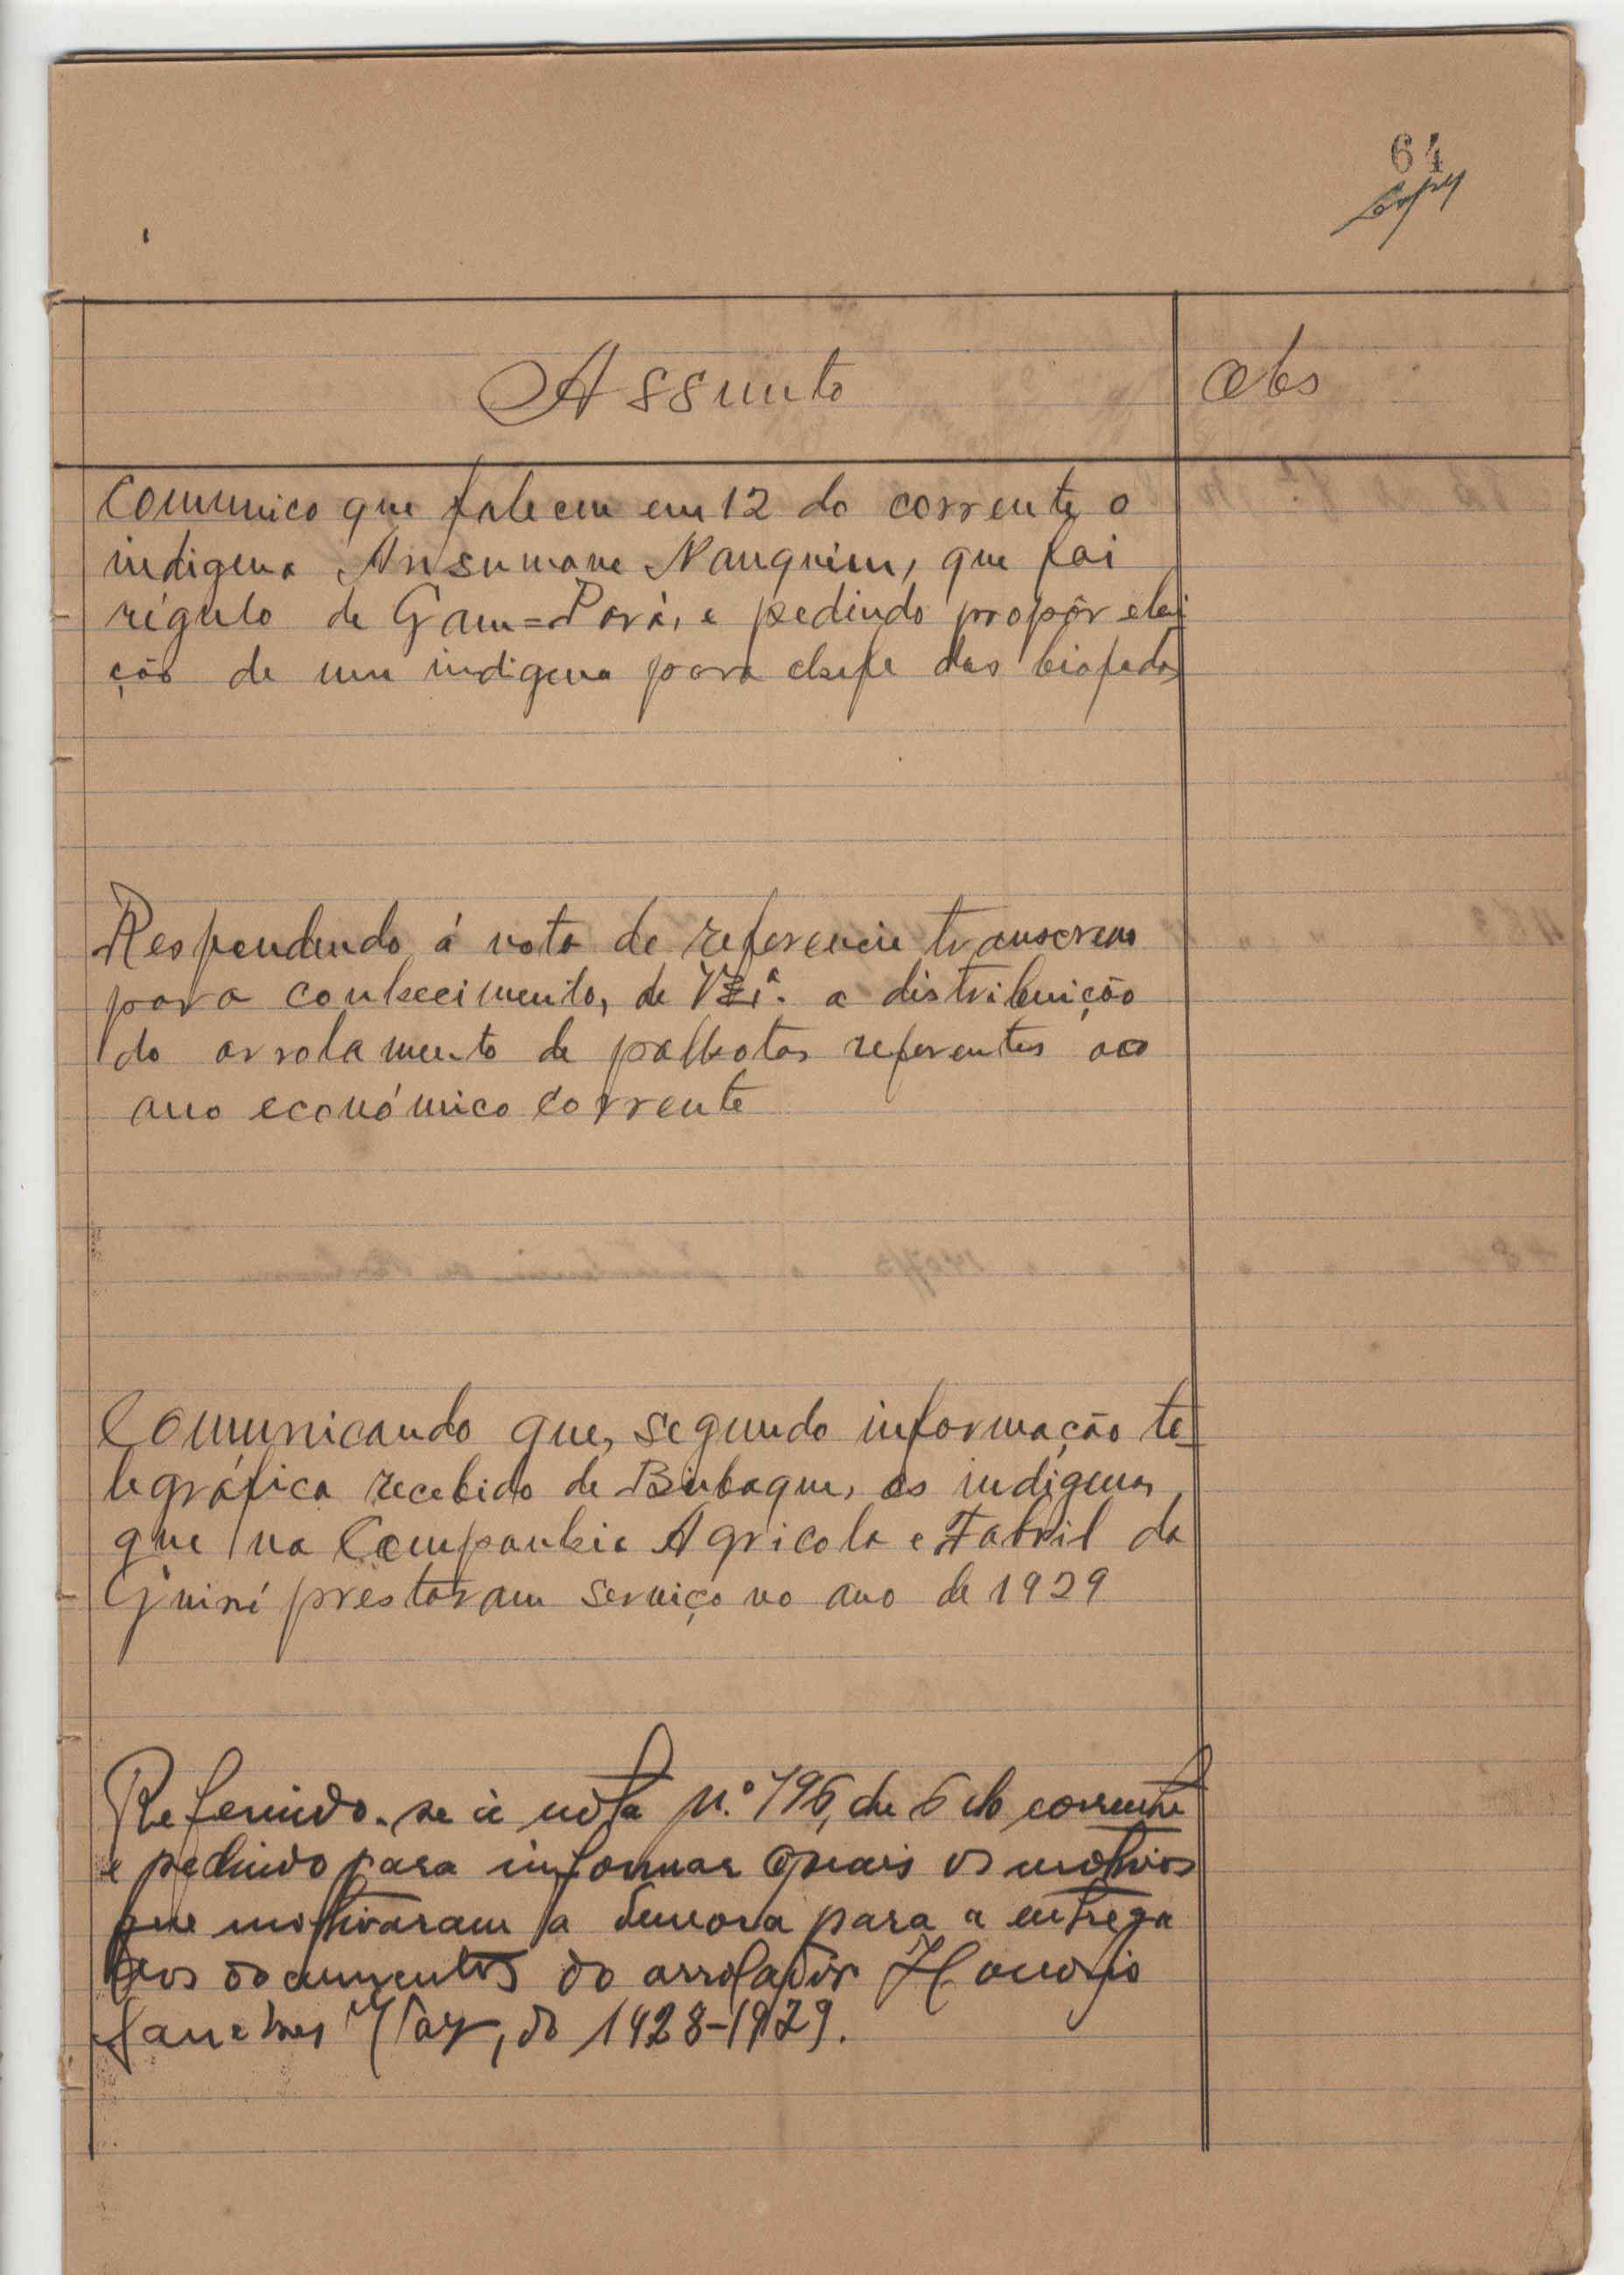 64
Assunto
Obs
Comunico que faleceu em 12 do corrente o
indigena Ansumane Nanquim, que foi
régulo de Gam=Pará, e pedindo propôr elei
ção de um indigena para chefe dos biafadas
Respondendo á nota de referencia transcrevo
para conhecimento, de V. a distribuição
do arrolamento de palhotas referentes ao
ano económico corrente
Comunicando que, segundo informação te-
legráfica recebida de Bubaque, os indígenas
que na Companhia Agricola e Fabril da
Guiné prestaram serviço no ano de 1929
Referindo-se á nota n.º 796, de 6 do corrente
e pedindo para informar quais os motivos
que motivaram a demora para a entrega
dos documentos do arrolador Honorio
Sanches Vaz, do 1928-1929.